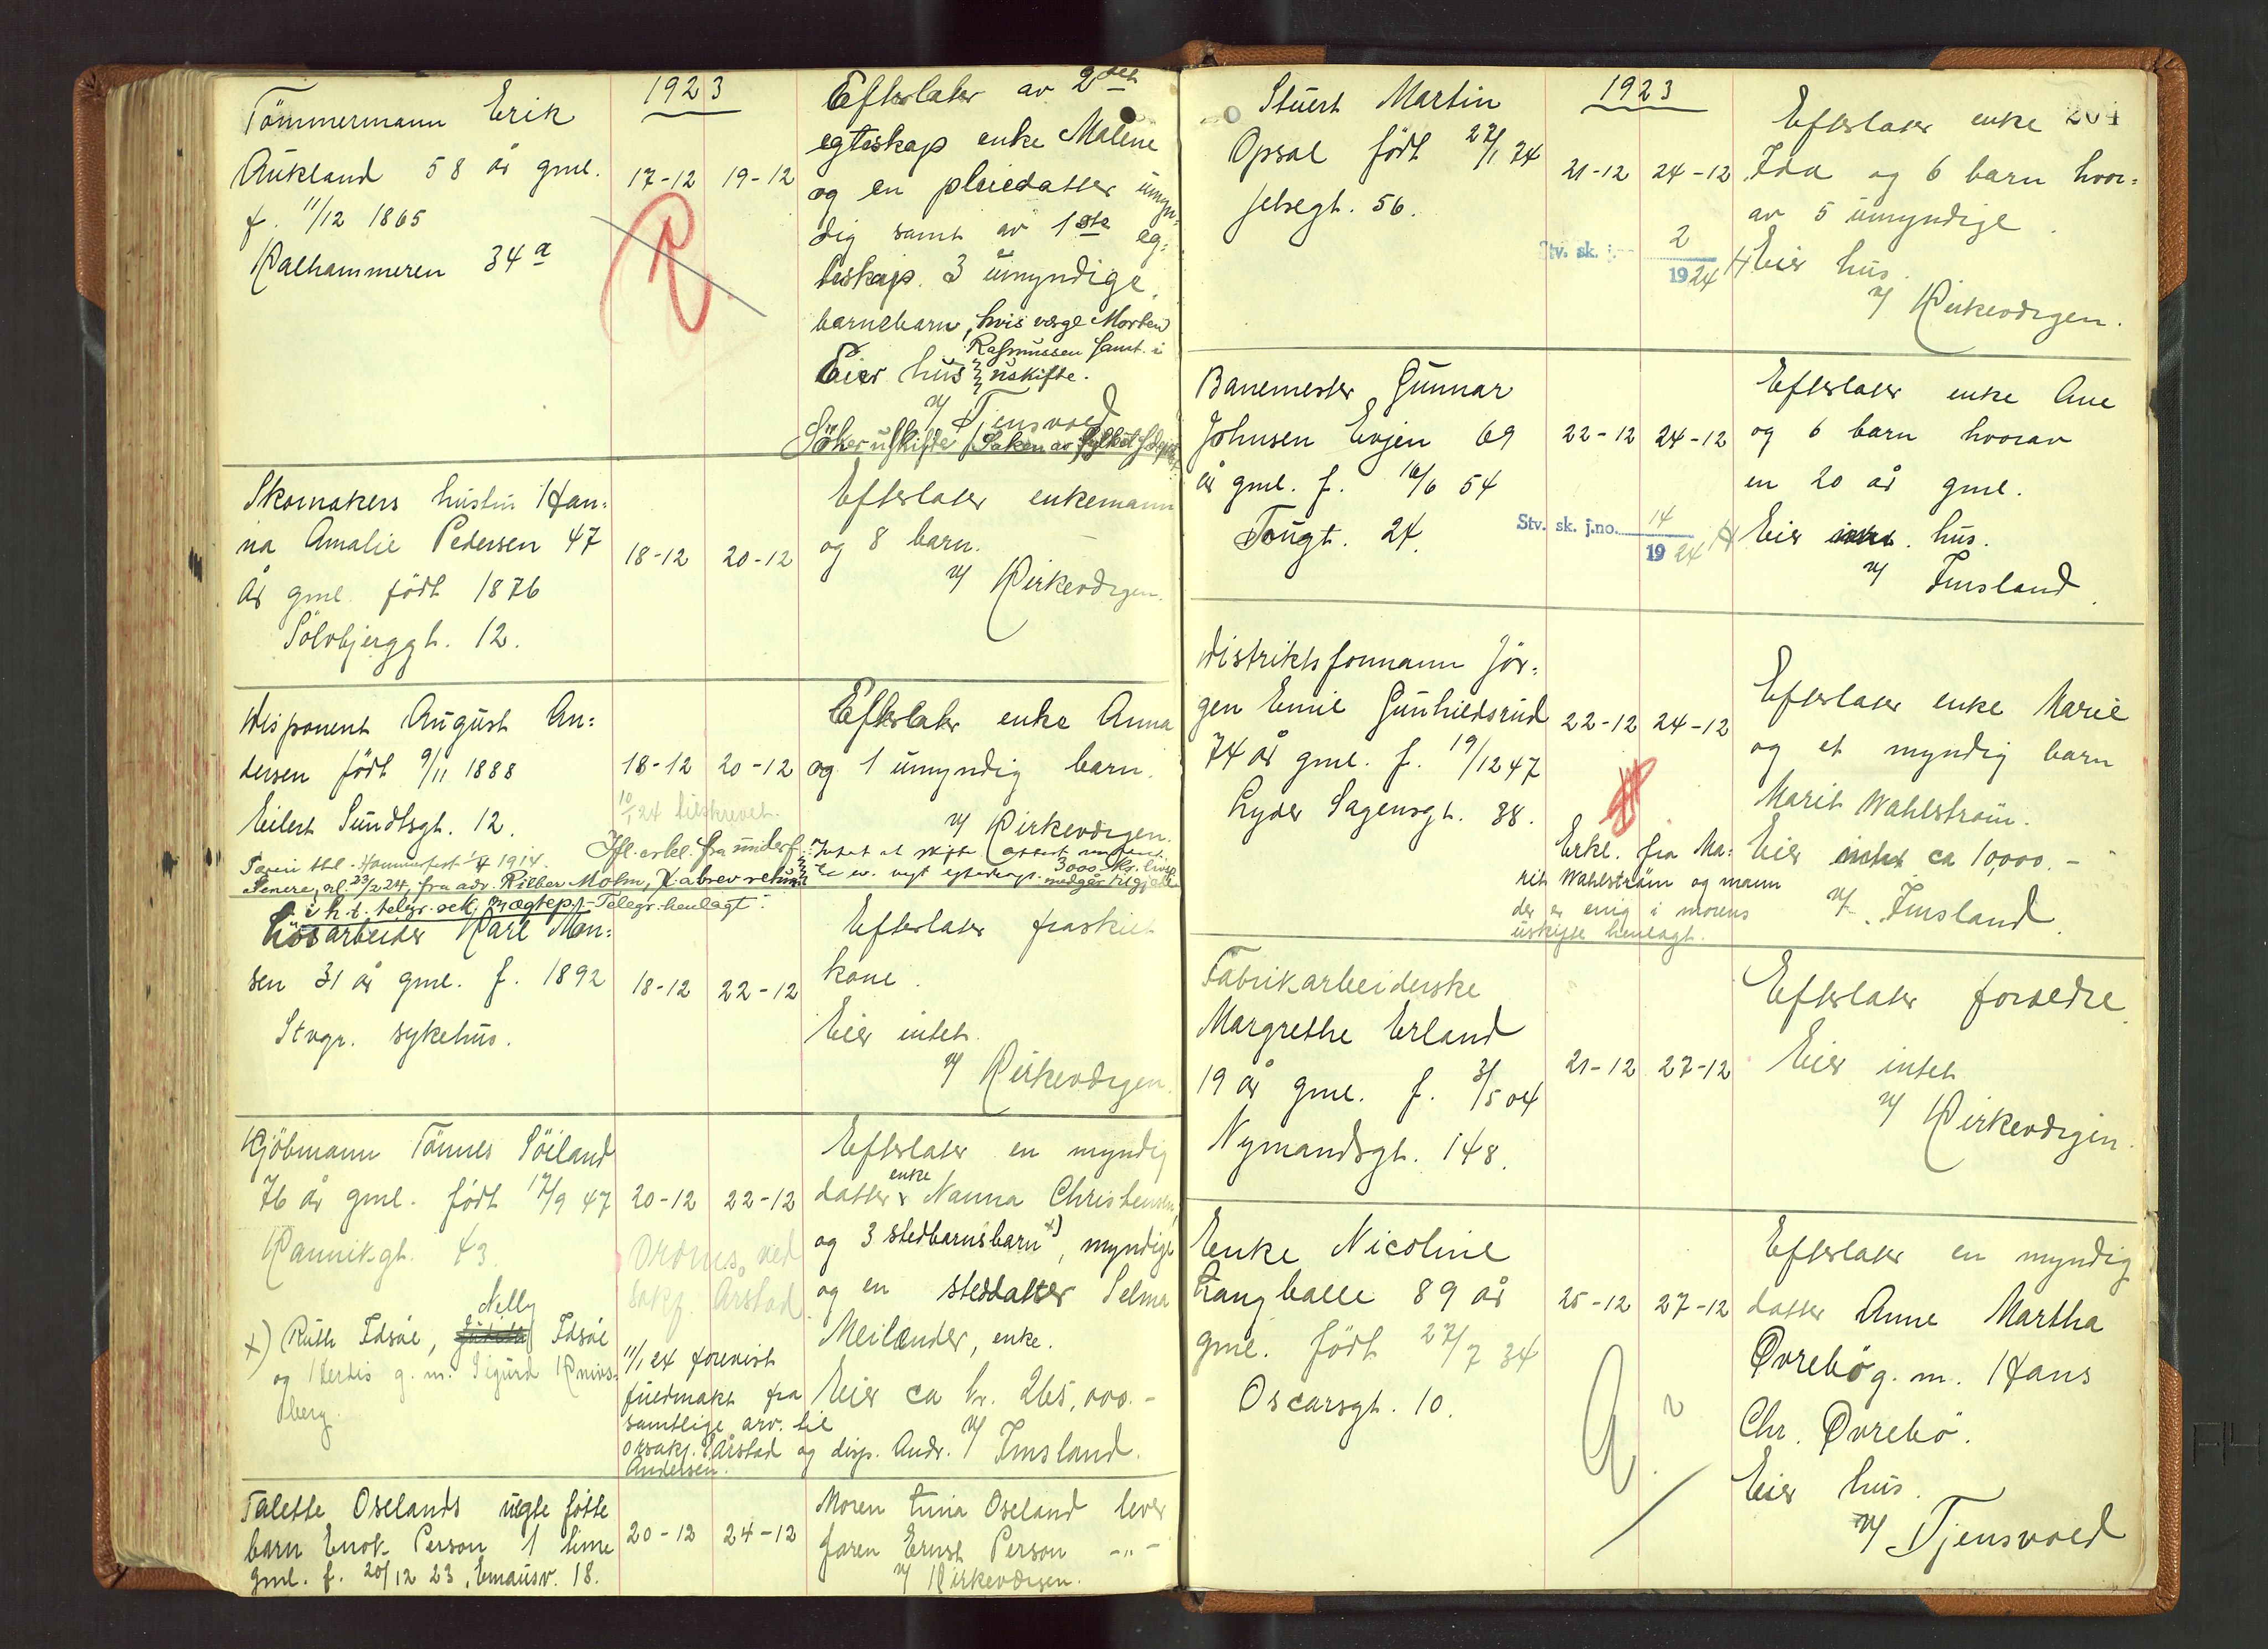 1923
Tömmermann Erik
Aukland 58 år gml.
f. 11/12 1865
Kalhammeren 34 a
17-12 19-12
Efterlater av 2det
egteskap enke Malene
og en pleiedatter umyn-
dig samt av 1ste eg-
teskap. 3 umyndige
barnebarn, hvis verge Morten
Rasmussen samt. i
Eier hus uskifte.
v/ Tjensvold
Söker uskifte
Skomakers hustru Han-
na Amalie Pedersen 47
år gml. født 1876
Sölvbjerggt. 12.
18-12 20-12
Efterlater enkemann
og 8 barn.
v/ Kirkevergen.
Disponent August An-
dersen født 9/11 1888
Eilert Sundtsgt. 12.
18-12 20-12
10/1 24 tilskrevet.
Efterlater enke Anna
og 1 umyndig barn.
v/ Kirkevergen.
Løsarbeider Karl Mon-
sen 31 år gml. f. 1892
Stvgr. sykehus.
18-12 22-12
Efterlater fraskilt
kone.
Eier intet.
v/ Kirkevergen
Kjöbmann Tönnes Söiland
76 år gml. født 17/9 47
Kannikgt. 43.
Nelly
x) Ruth Idsöe, Idsöe
og Herdis g. m. Sigurd Knivs-
berg.
20-12 22-12
Ordnes ved
sakf. Årstad
11/1 24 forevist
fuldmakt fra
samtlige arv. til
o.r.sakf. Årstad og disp. Andr.
Andersen.
Efterlater en myndig
enke
datter Nanna Christensen,
og 3 stedbarnsbarn x), myndige
og en steddatter Selma
Meilænder, enke.
Eier ca kr. 265,000.-
v/ Imsland.
Talette Oselands uegte følte
barn Enok Person 1 time
gml. f. 20/12 23, Emausv. 18.
20-12 24-12
Moren Tina Oseland lever
faren Ernst Person -"-
v/ Kirkevergen.
1923
204
Stuert Martin
Opsal født 27/1 74
Jelsegt. 56.
21-12 24-12
Stv. sk. j. 2
1924
Efterlater enke
Ida og 6 barn hvor-
av 5 umyndige.
Eier hus.
v/ Kirkevergen.
Banemester Gunnar
Johnsen Evjen 69
år gml. f. 16/6 54
Tougt. 24.
22-12 24-12
Stv. sk. j.no. 14
1924
Efterlater enke Ane
og 6 barn hvorav
en 20 år gml.
Eier hus.
v/ Imsland.
Distriktsformann Jör-
gen Emil Gunhildsrud
74 år gml. f. 19/12 47
Lyder Sagensgt. 38.
22-12 24-12
Erkl. fra Ma-
rit Wahlström og mann
der er enig i morens
uskifte henlagt.
Efterlater enke Marie
og et myndig barn
Marit Wahlström.
Eier ca 10,000.-
v/ Imsland.
Fabrikarbeiderske
Margrethe Erland
19 år gml. f. 31/5 04
Nymandsgt. 148.
21-12 27-12
Efterlater forældre.
Eier intet
v/ Kirkevergen.
Enke Nicoline
Langballe 89 år
gml. født 27/7 34
Oscarsgt. 10.
25-12 27-12
Efterlater en myndig
datter Anne Martha
Øvrebö g. m. Hans
Chr. Øvrebö.
Eier hus.
v/ Tjensvold